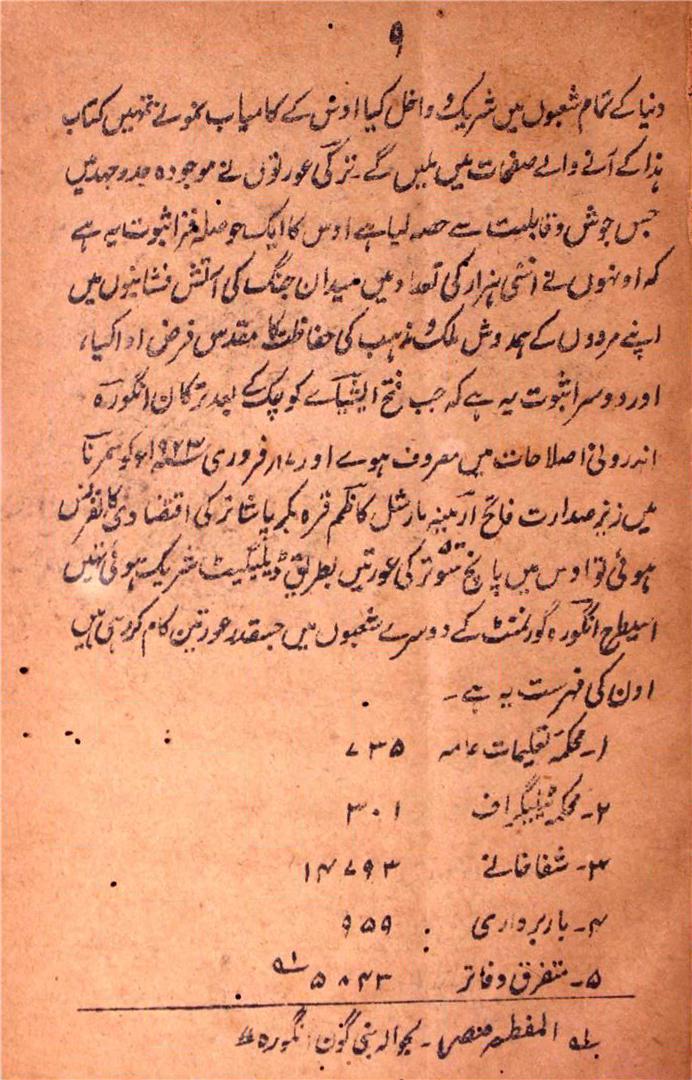 ۹
دنیا کے تمام شعبوں میں شریک و داخل کیا اوس کے کامیاب نمونے تمہیں کتاب
ہذا کے آنے والے صفحات میں ملیں گے۔ ترکی عورتوں نے موجودہ جدوجہد میں
جس جوش و قابلیت سے حصہ لیا ہے اوس کا ایک حوصلہ افزا ثبوت یہ ہے
کہ اونہوں نے انسٹی ہزار کی تعداد میں میدان جنگ کی آتش فشانیوں میں
اپنے مردوں کے ہمدوش ملک و مذہب کی حفاظت کا مقدس فرض ادا کیا،
اور دوسرا ثبوت یہ ہے کہ جب فتح ایشیاے کوچک کے بعد ترکان انگورہ
اندرونی اصلاحات میں مصروف ہوے اور ۱۷؍ فروری ۱۹۲۳ء کو سمرنا
میں زیر صدارت فاتح آرمینیہ مارشل کاظم قرہ بکر پاشا ترکی اقتصادی کانفرنس
ہوئی تو اوس میں پانچ سو ترکی عورتیں بطریق ڈیلیگیٹ شریک ہوئی تہیں
اسیطرح انگورہ گورنمنٹ کے دوسرے شعبوں میں جسقدر عورتین کام کر رہی ہیں
اون کی فہرست یہ ہے۔
۱۔ محکمہ تعلیمات عامہ ۷۳۵
۲۔ محکمہ ٹیلیگراف ۳۰۱
۳۔ شفاخانے ۱۴۷۹۳
۴۔ باربرداری ۹۵۹
۵۔ متفرق دفاتر ۵۸۴۳ لہ
لہ المقطم مصر۔ بحوالہ ینی گون انگورہ